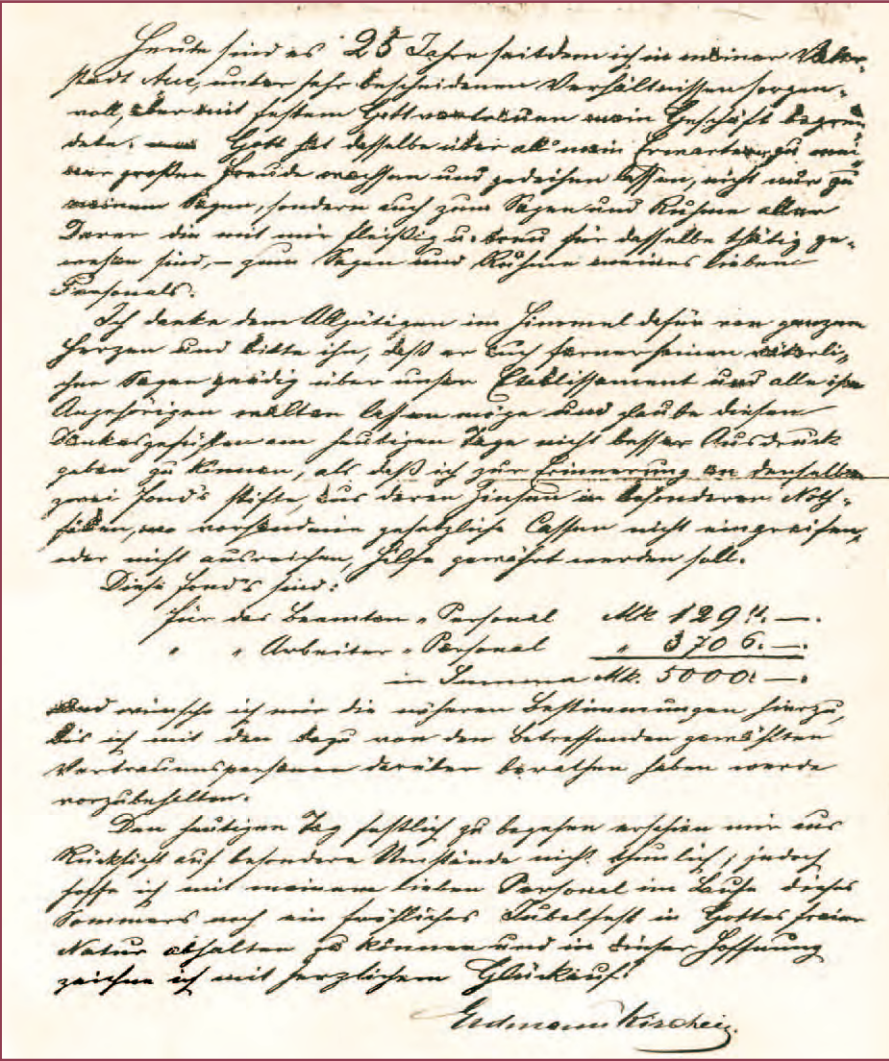 Heute sind es 25 Jahre seitdem ich in meiner Vater-
stadt Aue, unter sehr bescheidenen Verhältnissen sorgen-
voll, aber mit festem Gottvertrauen mein Geschäft begrün-
dete. Gott hat dasselbe über all' mein Erwarten zu mei-
ner großen Freude wachsen und gedeihen lassen, nicht nur zu
meinem Segen, sondern auch zum Segen und Ruhme aller
Derer die mit mir fleißig u. treu für dasselbe thätig ge-
wesen sind, – zum Segen und Ruhme meines lieben
Personals.
Ich danke dem Allgütigen im Himmel dafür von ganzem
Herzen und bitte ihn, daß er auch ferner seinen väterli-
chen Segen gnädig über unser Etablissement und alle ihm
Angehörigen walten lassen möge und glaube diesen
Dankesgefühlen am heutigen Tage nicht besser Ausdruck
geben zu können, als daß ich zur Erinnerung an denselben
zwei Fond's stifte, aus deren Zinsen in besonderen Noth-
fällen, wo vorhandene gesetzliche Cassen nicht eingreifen,
oder nicht ausreichen, Hilfe gewährt werden soll.
Diese Fond's sind:
für das Beamten-Personal Mk 1294.—.
" " Arbeiter-Personal " 3706.—.
in Summa Mk. 5000.—.
und wünsche ich mir die näheren Bestimmungen hierzu,
bis ich mit den dazu von den Betreffenden gewählten
Vertrauenspersonen darüber berathen haben werde
vorzubehalten.
Den heutigen Tag festlich zu begehen erschien mir aus
Rücksicht auf besondere Umstände nicht thunlich; jedoch
hoffe ich mit meinem lieben Personal im Laufe dieses
Sommers noch ein fröhliches Jubelfest in Gottes freier
Natur abhalten zu können und in dieser Hoffnung
zeichne ich mit herzlichem Glückauf!
Erdmann Kircheis.